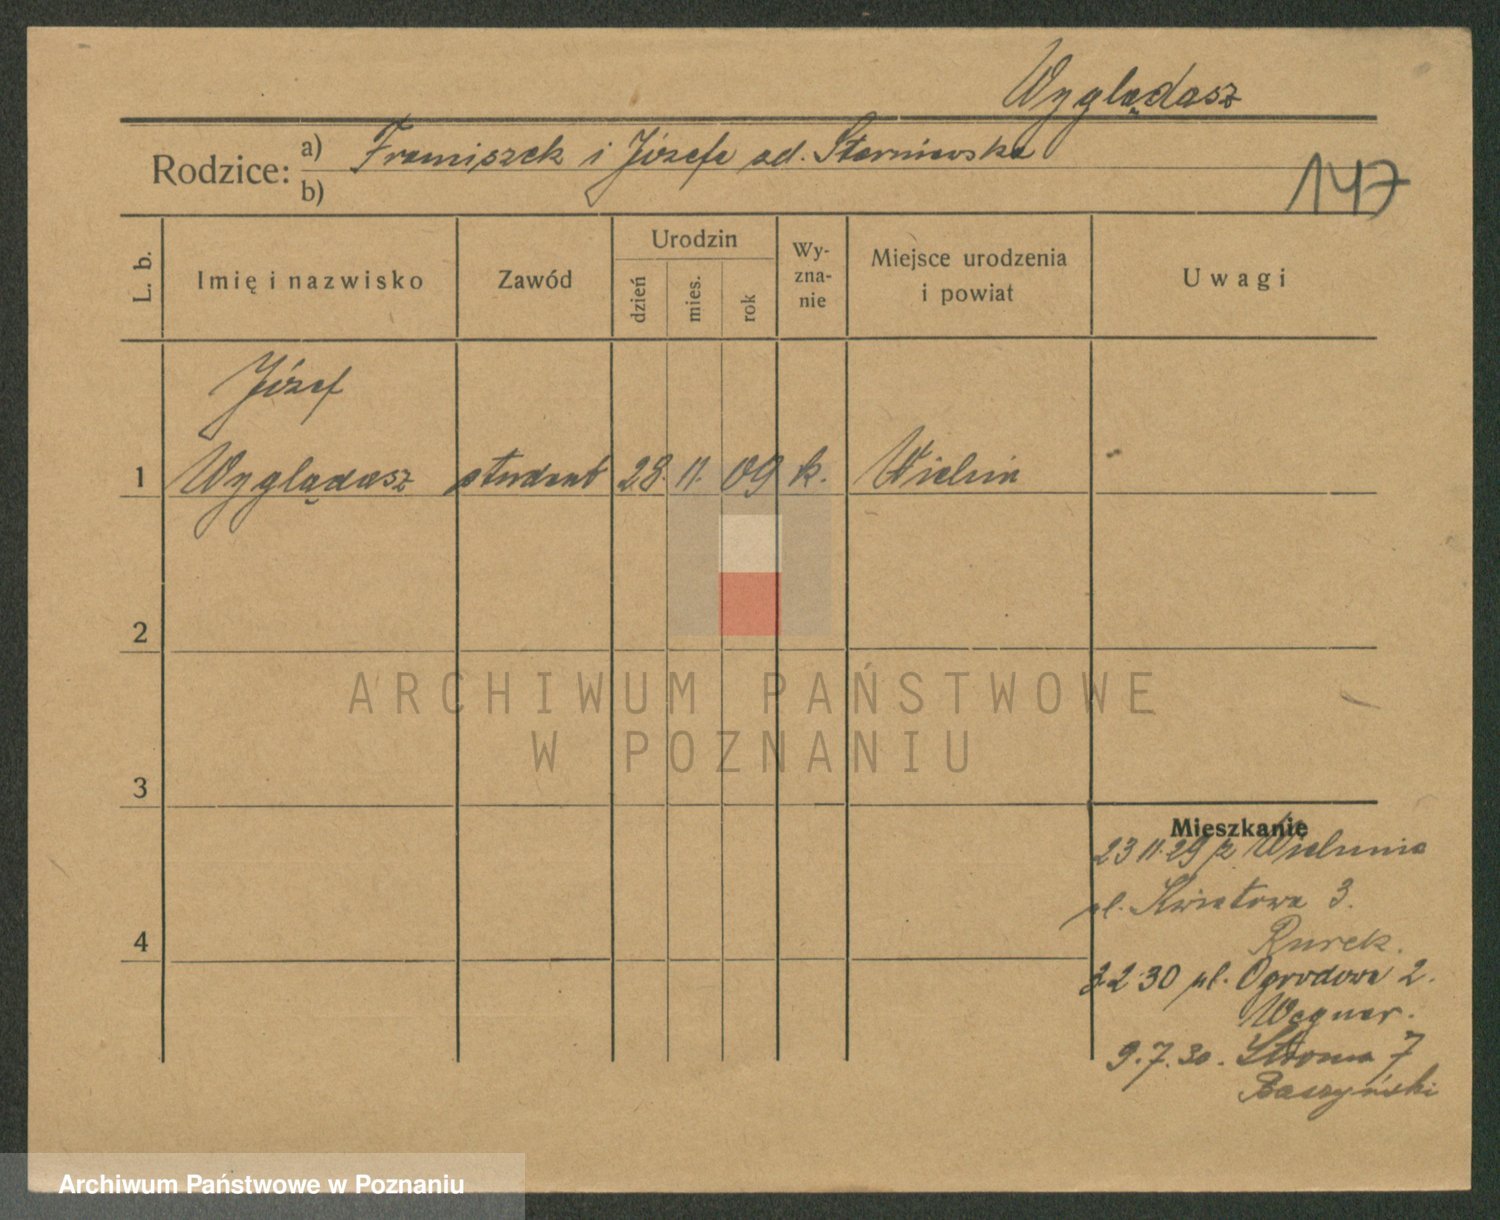 Wyglądasz
Rodzice: a) Franciszek i Józefa
b)
147
L. b.
Imię i nazwisko
Zawód
Urodzin
dzień
mies.
rok
Wy-
zna-
nie
Miejsce urodzenia
i powiat
Uwagi
Józef
1 Wyglądasz student 28. 11. 09 k. Wieluń
2
3
4
Mieszkanie
23 11. 29 z Wielunia
ul. Kwiatowa 3.
Rurek.
2 30 ul. Ogrodowa 2.
Wegner.
9. 7. 30. Stroma 7
Baszyński
ARCHIWUM PAŃSTWOWE
W POZNANIU
Archiwum Państwowe w Poznaniu